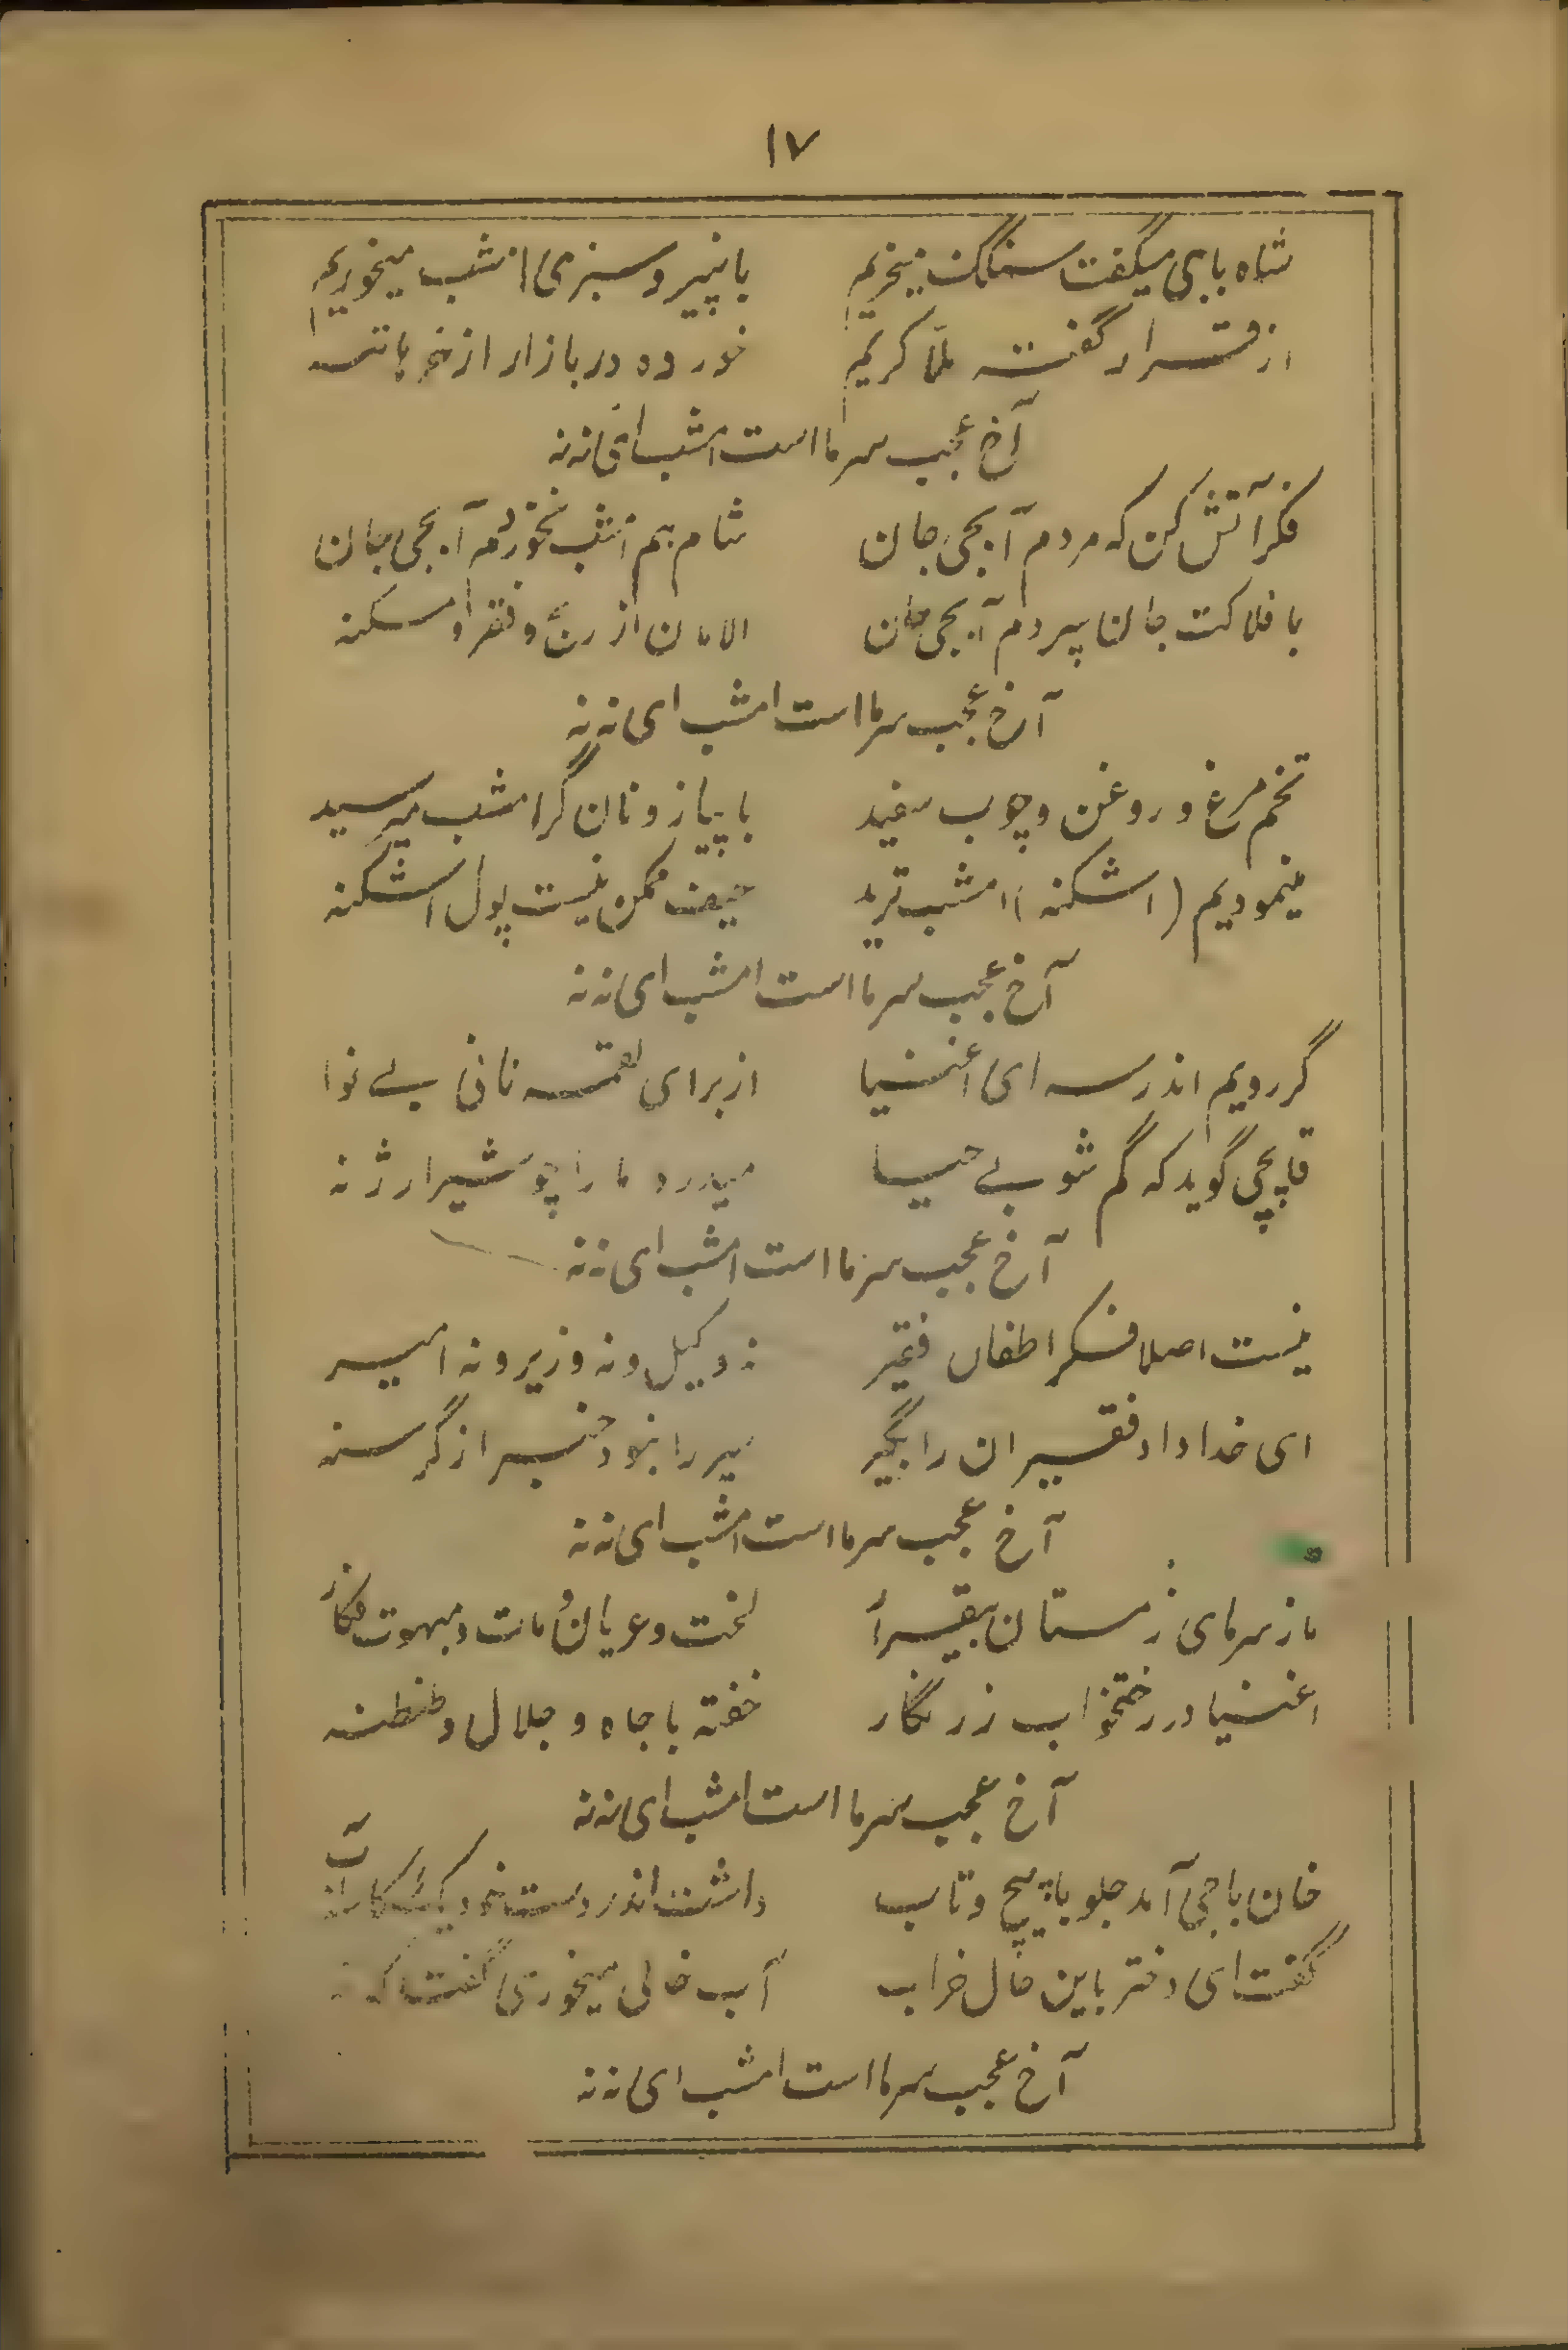 ۱۷
شاه باجی میگفت سنگک میخریم با پنیر و سبزی امشب میخوریم
از قرار گفته ملّا کریم خورده در بازار از
آخ عجب سرما است امشب ای ننه
فکر آتش کن که مردم آبجی جان شام هم امشب نخوردم آبجی جان
با فلاکت جان سپردم آبجی جان الامان از رنج و فقر و مسکنه
آخ عجب سرما است امشب ای ننه
تخم مرغ و روغن و چوب سفید با پیاز و نان گر امشب میرسید
مینمودیم (اشکنه) امشب ترید حیف ممکن نیست پول اشکنه
آخ عجب سرما است امشب ای ننه
گر رویم اندر سرای اغنیا از برای لقمه نانی بی نوا
قاپچی گوید که گم شو بی حیا میدرد ما را چو شیر ارژنه
آخ عجب سرما است امشب ای ننه
نیست اصلا فکر اطفال فقیر نه وکیل و نه وزیر و نه امیر
ای خدا داد فقیران را بگیر سیر را نبود خبر از گرسنه
آخ عجب سرما است امشب ای ننه
ما ز سرمای زمستان بیقرار لخت و عریان و مات و مبهوت فکار
اغنیا در رختخواب زر نگار خفته با جاه و جلال و طنطنه
آخ عجب سرما است امشب ای ننه
خان باجی آمد جلو با پیچ و تاب داشت اندر دست خود یک کاسه آب
گفت ای دختر باین حال خراب آب خالی میخوری گفتا که نه
آخ عجب سرما است امشب ای ننه